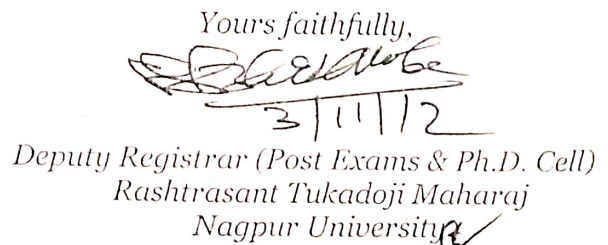 Yours faithfully,
3/11/12
Deputy Registrar (Post Exams & Ph.D. Cell)
Rashtrasant Tukadoji Maharaj
Nagpur University